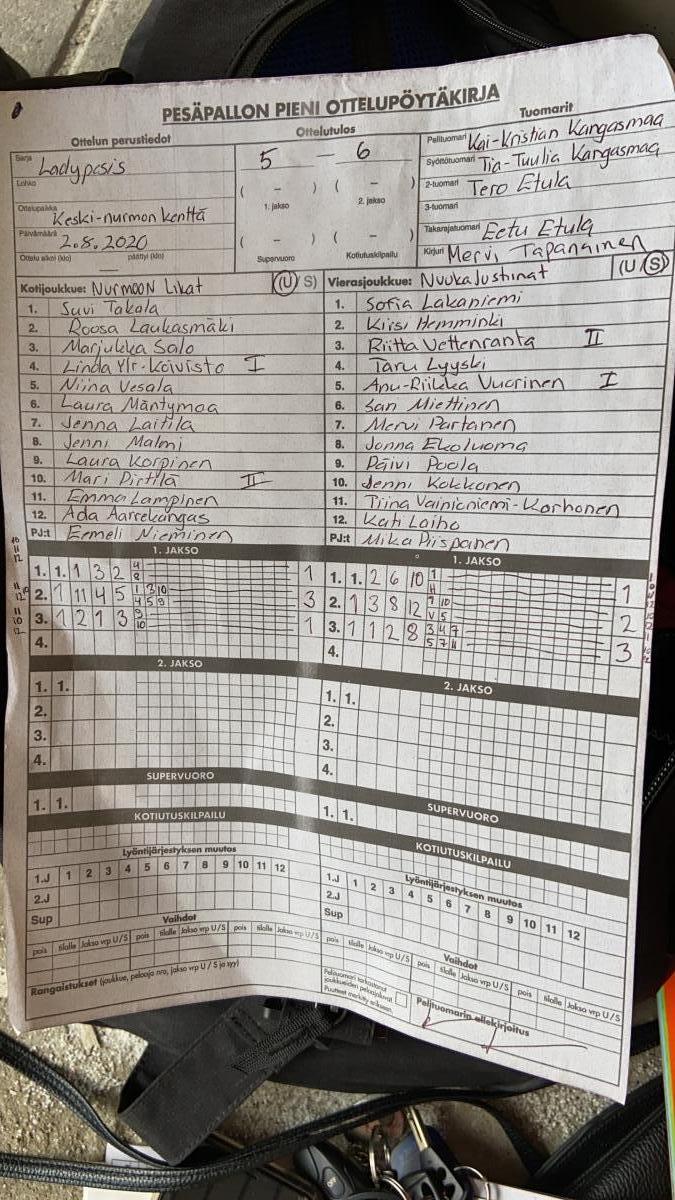 PESÄPALLON PIENI OTTELUPÖYTÄKIRJA
Ottelun perustiedot
Sarja Ladypesis
Lohko
Ottelupaikka Keski-nurmon kenttä
Päivämäärä 2.8.2020
Ottelu alkoi (klo) päättyi (klo)
Ottelutulos
5 – 6
( – ) ( – )
1. jakso 2. jakso
( – ) ( – )
Supervuoro Kotiutuskilpailu
Tuomarit
Pelituomari Kai-Kristian Kangasmaa
Syöttötuomari Tia-Tuulia Kangasmaa
2-tuomari Tero Etula
3-tuomari
Takarajatuomari Eetu Etula
Kirjuri Mervi Tapanainen
Kotijoukkue: Nurmoon Likat (U S)
1. Suvi Takala
2. Roosa Laukasmäki
3. Marjukka Salo
4. Linda Yli-Koivisto I
5. Niina Vesala
6. Laura Mäntymaa
7. Jenna Laitila
8. Jenni Malmi
9. Laura Korpinen
10. Mari Pirttilä II
11. Emma Lampinen
12. Ada Aarrekangas
PJ:t Eemeli Nieminen
Vierasjoukkue: Nuukajustiinat (U S)
1. Sofia Lakaniemi
2. Kirsi Hemminki
3. Riitta Vettenranta II
4. Taru Lyyski
5. Anu-Riikka Vuorinen I
6. Sari Miettinen
7. Mervi Partanen
8. Jonna Ekoluoma
9. Päivi Poola
10. Jenni Kokkonen
11. Tiina Vainioniemi-Korhonen
12. Kati Laiho
PJ:t Mika Piispanen
1. JAKSO
1. 1. 1 3 2 4 8 1
2. 1 11 4 5 1 3 10 4 5 9 3
3. 1 2 1 3 9 10 1
4.
2. JAKSO
1. 1.
2.
3.
4.
SUPERVUORO
1. 1.
KOTIUTUSKILPAILU
Lyöntijärjestyksen muutos
1.J 1 2 3 4 5 6 7 8 9 10 11 12
2.J
Sup
Vaihdot
pois tilalle Jakso vrp U/S pois tilalle Jakso vrp U/S pois tilalle Jakso vrp U/S
Rangaistukset (joukkue, pelaaja nro, jakso vrp U / S ja syy)
1. JAKSO
1. 1. 2 6 10 1 11 1
2. 1 3 8 12 1 10 V 5 2
3. 1 1 2 8 3 4 7 5 7 11 3
4.
2. JAKSO
1. 1.
2.
3.
4.
SUPERVUORO
1. 1.
KOTIUTUSKILPAILU
Lyöntijärjestyksen muutos
1.J 1 2 3 4 5 6 7 8 9 10 11 12
2.J
Sup
Vaihdot
pois tilalle Jakso vrp U/S pois tilalle Jakso vrp U/S pois tilalle Jakso vrp U/S
Pelituomari tarkastanut
joukkueiden pelaajaluvat
Puutteet merkitty erikseen.
Pelituomarin allekirjoitus